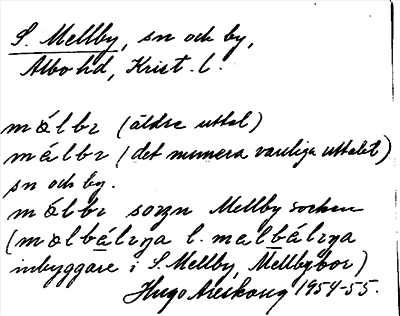 S. Mellby, sn och by,
Albo hd, Krist. l.
mǿlbr (äldre uttal)
málbr (det numera vanliga uttalet)
sn och by.
mǿlbr sorgn Mellby socken
(mølbálrŋa l. malbálrŋa
inbyggare i S. Mellby, Mellbybor)
Hugo Areskoug 1954-55.